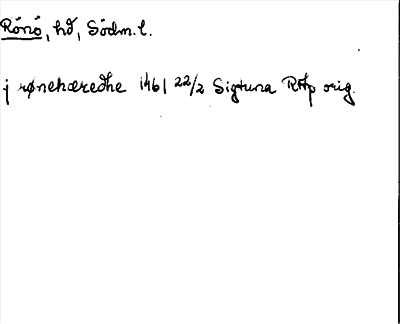 Rönö, hd, Södm. l.
j rønehæredhe 1461 22/2 Sigtuna RAp orig.